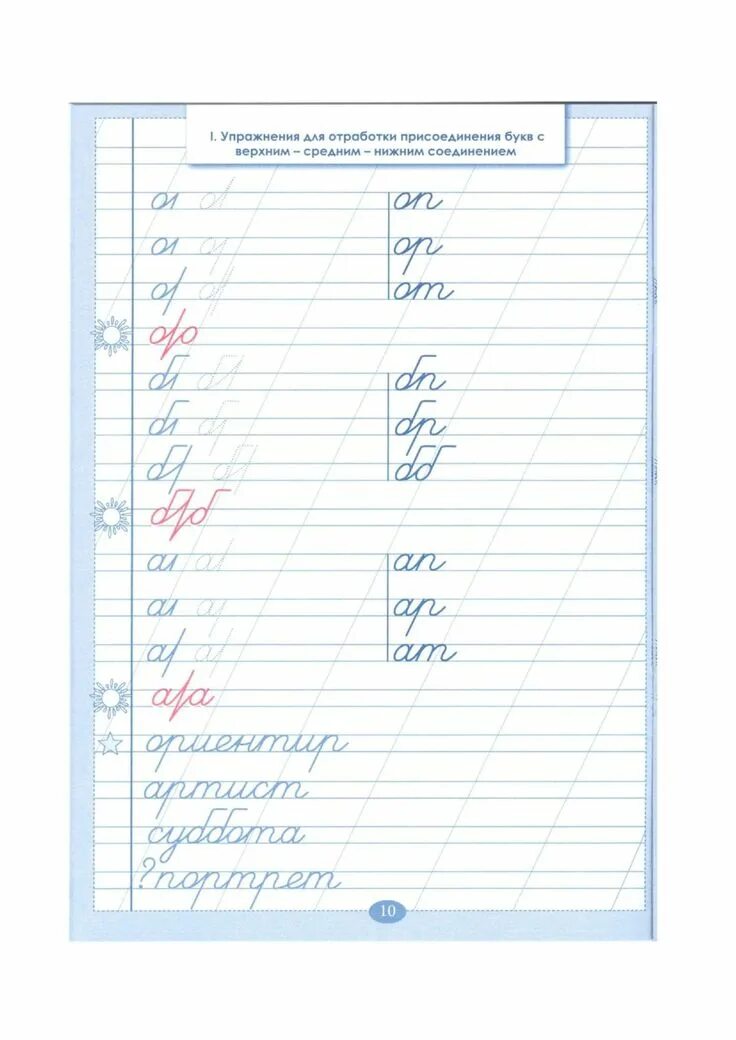 I. Упражнения для отработки присоединения букв с
верхним – средним – нижним соединением
оп
ор
от
бп
бр
бб
ап
ар
ат
ориентир
артист
суббота
?портрет
10